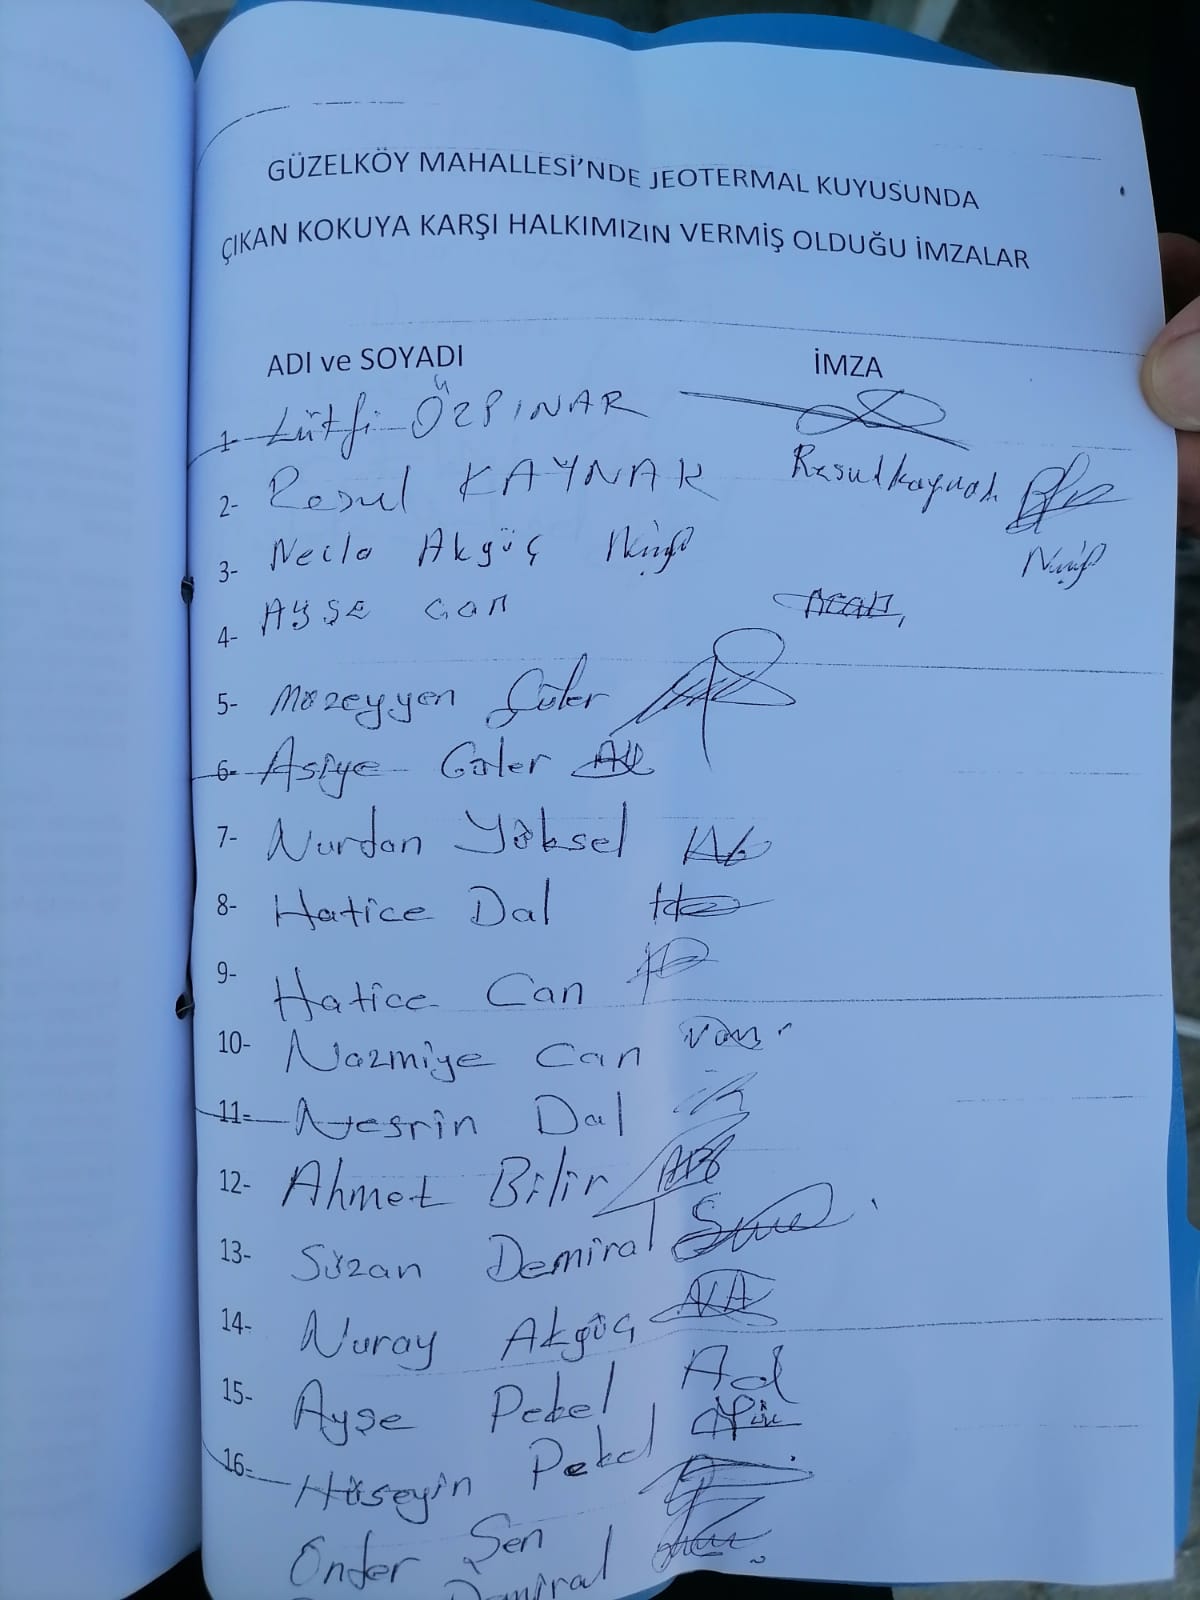 GÜZELKÖY MAHALLESİ'NDE JEOTERMAL KUYUSUNDA
ÇIKAN KOKUYA KARŞI HALKIMIZIN VERMİŞ OLDUĞU İMZALAR
ADI ve SOYADI İMZA
1- Lütfi ÖZPINAR
2- Resul KAYNAK Resul Kaynak
3- Necla Akgüç
4- AYŞE CAN ACAN
5- Müzeyyen Güler
6- Asiye Güler
7- Nurdan Yüksel
8- Hatice Dal
9- Hatice Can
10- Nazmiye Can
11- Nesrin Dal
12- Ahmet Bilir
13- Süzan Demiral
14- Nuray Akgüç NA
15- Ayşe Pekel
16- Hüseyin Pekel
Önder Şen
Demiral